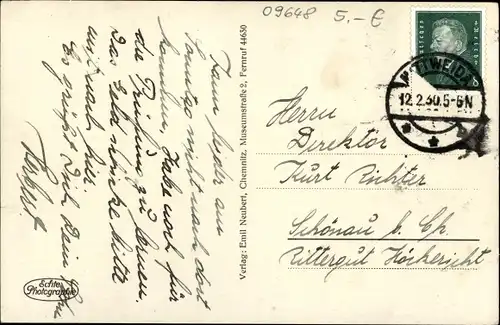 09648 5,-€
Kann leider am
Sonntag nicht nach dort
kommen, habe noch für
die Prüfung zu lernen.
Das Geld möchte bitte
nach hier
Es grüßt Dich Dein
Herbert.
Echte
Photographie
Verlag: Emil Neubert, Chemnitz, Museumstraße 2, Fernruf 44630
MITTWEIDA
12.2.30.5-6N
Herrn
Direktor
Kurt Richter
Schönau b. Ch.
Rittergut Höckericht